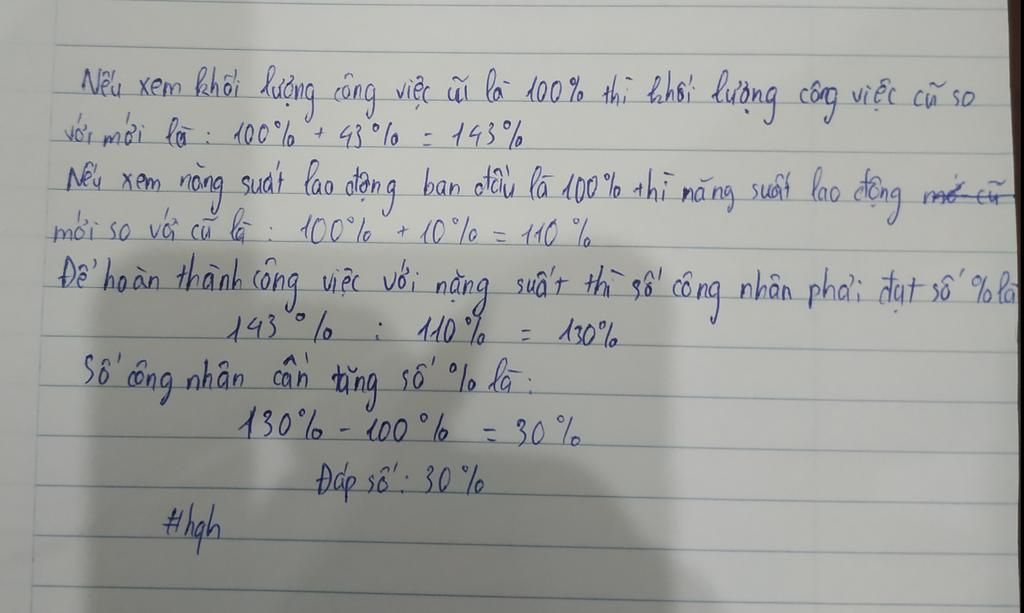 Nếu xem khối lượng công việc cũ là 100% thì khối lượng công việc cũ so
với mới là: 100% + 43% = 143%
Nếu xem năng suất lao động ban đầu là 100% thì năng suất lao động mớ cũ
mới so với cũ là: 100% + 10% = 110%
Để hoàn thành công việc với năng suất thì số công nhân phải đạt số % là
143% : 110% = 130%
Số công nhân cần tăng số % là:
130% - 100% = 30%
Đáp số: 30%
#hgh